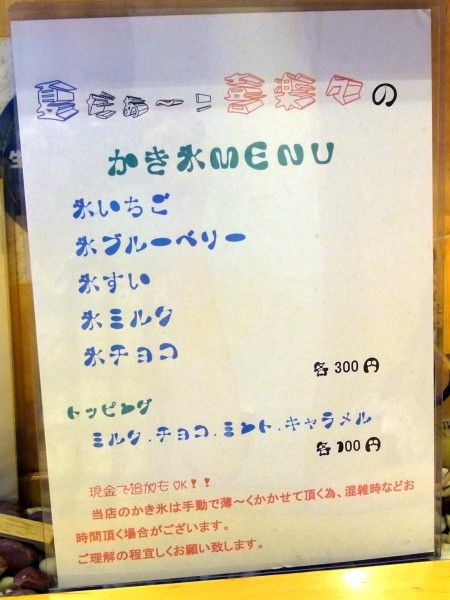 夏だぁ～！喜楽々の
かき氷MENU
氷いちご
氷ブルーベリー
氷すい
氷ミルク
氷チョコ
各300円
トッピング
ミルク．チョコ．ミント．キャラメル
各100円
現金で追加もOK！！
当店のかき氷は手動で薄～くかかせて頂く為、混雑時などお
時間頂く場合がございます。
ご理解の程宜しくお願い致します。